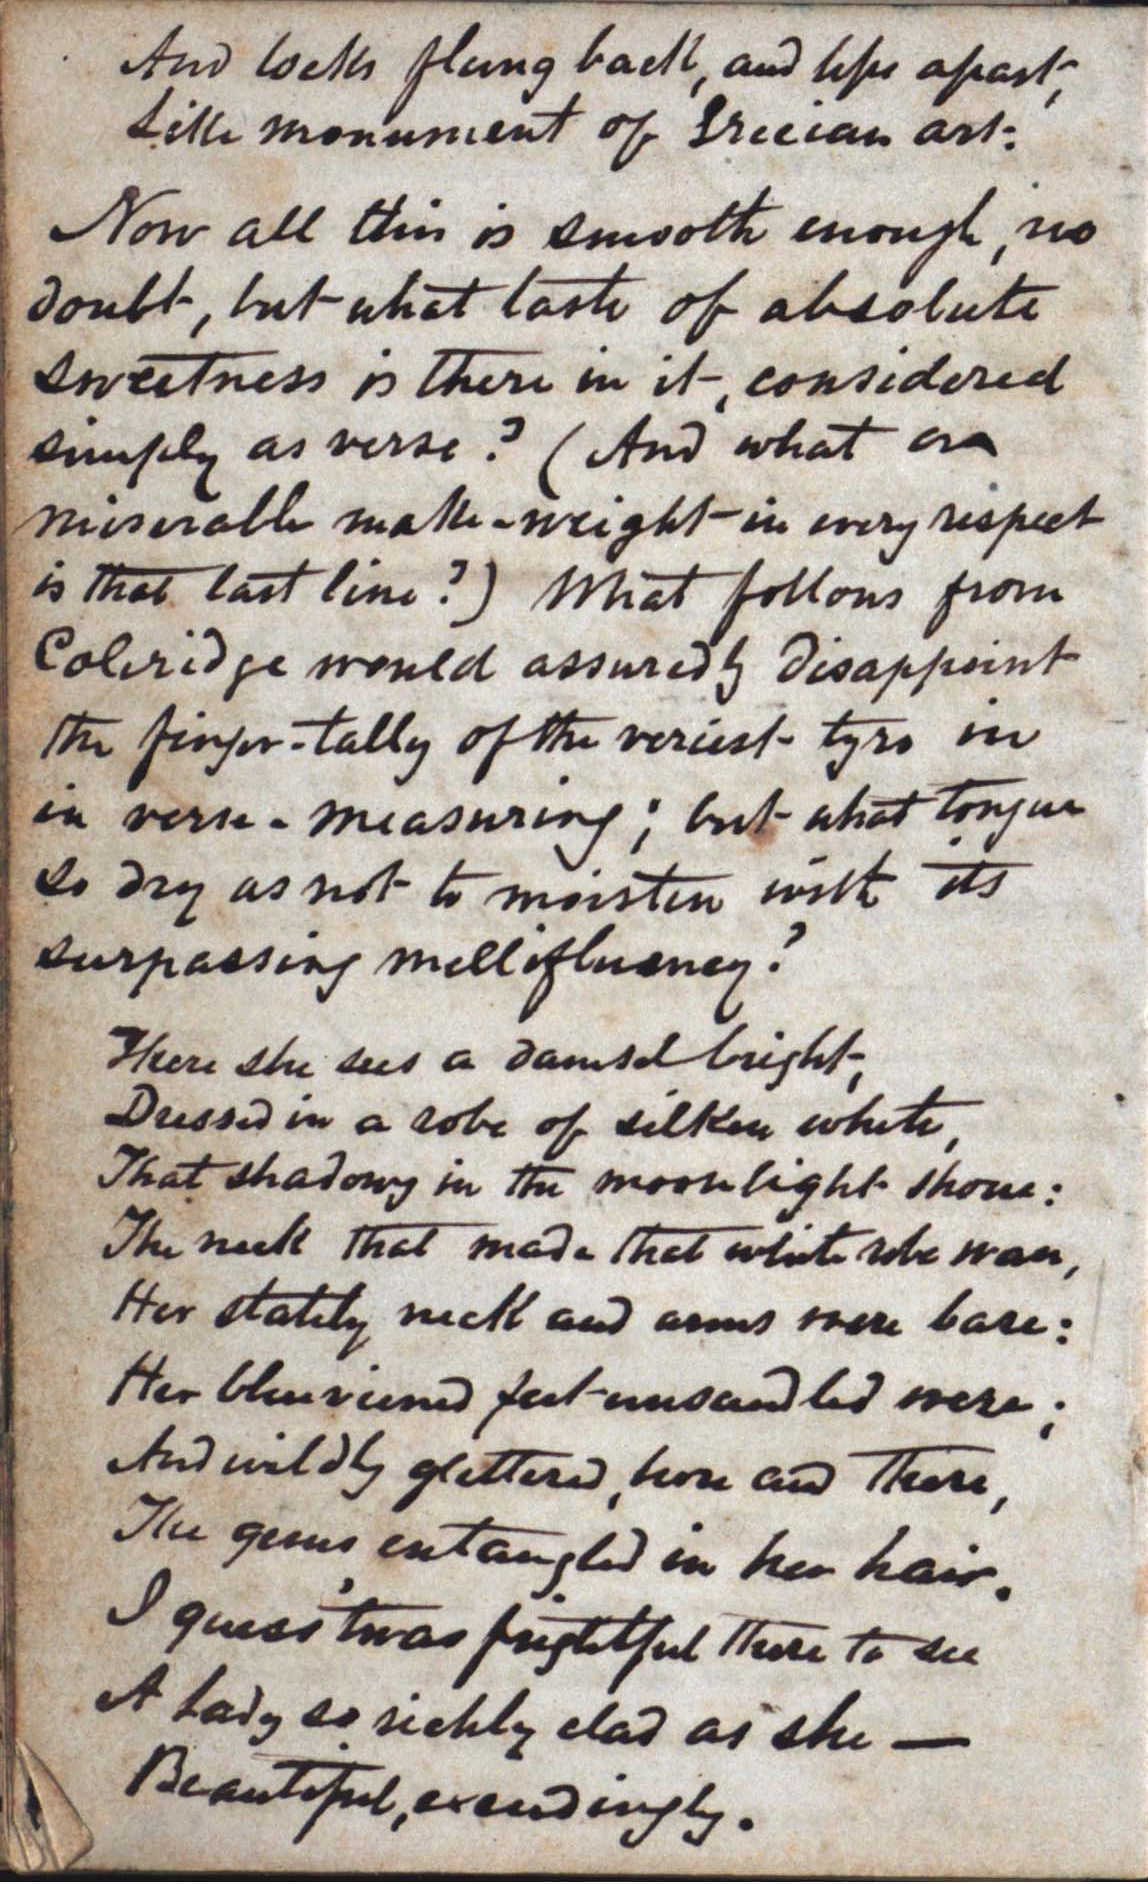 And locks flung back, and lips apart,
Like monument of Grecian art:
Now all this is smooth enough, no
doubt, but what taste of absolute
sweetness is there in it, considered
simply as verse? (And what a
miserable make-weight in every respect
is that last line?) What follows from
Coleridge would assuredly disappoint
the finger-tally of the veriest tyro in
in verse-measuring; but what tongue
so dry as not to moisten with its
surpassing mellifluency?
There she sees a damsel bright,
Dressed in a robe of silken white,
That shadowy in the moonlight shone:
The neck that made that white robe wan,
Her stately neck and arms were bare:
Her blueveined feet unsandled were;
And wildly glittered, here and there,
The gems entangled in her hair.
I guess 'twas frightful there to see
A lady so richly clad as she —
Beautiful, exceedingly.